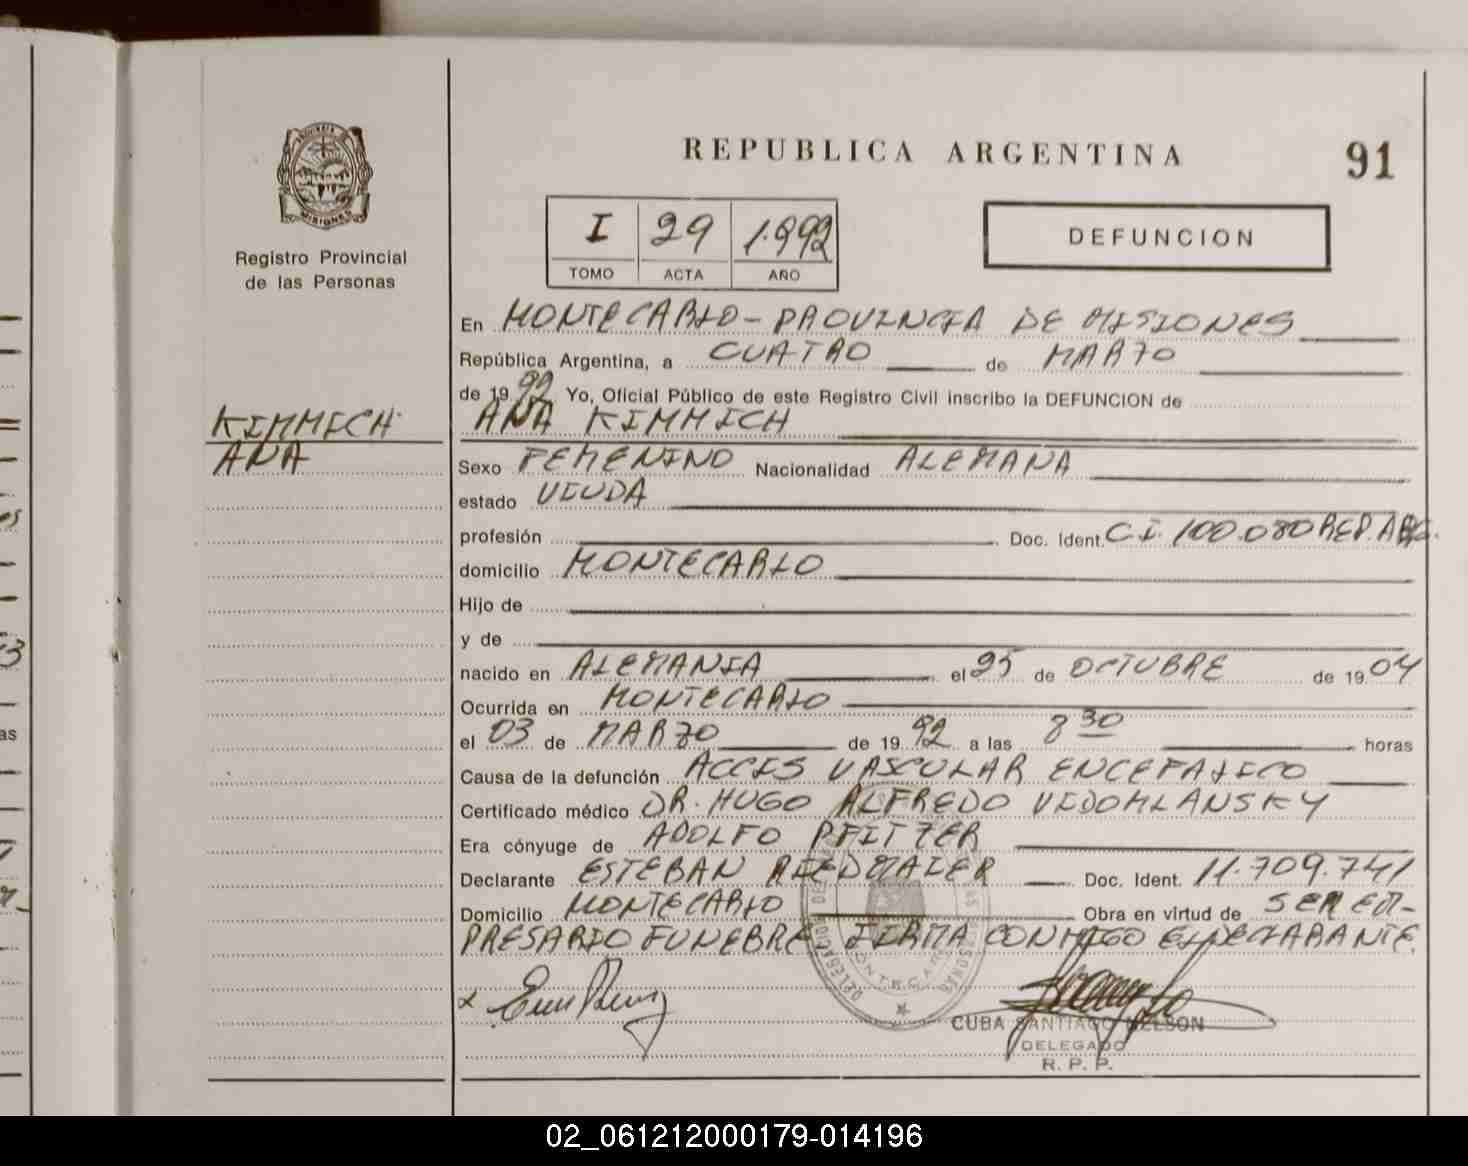 REPUBLICA ARGENTINA
91
PROVINCIA
MISIONES
Registro Provincial
de las Personas
I 29 1.992
TOMO ACTA AÑO
DEFUNCION
En MONTECARLO - PROVINCIA DE MISIONES
República Argentina, a CUATRO de MARZO
de 1992 Yo, Oficial Público de este Registro Civil inscribo la DEFUNCION de
KIMMICH
ANA
ANA KIMMICH
Sexo FEMENINO Nacionalidad ALEMANA
estado VIUDA
profesión Doc. Ident. C.I. 100.080 REP. ARG.
domicilio MONTECARLO
Hijo de
y de
nacido en ALEMANIA el 25 de OCTUBRE de 1904
Ocurrida en MONTECARLO
el 03 de MARZO de 1992 a las 8 30 horas
Causa de la defunción ACCIS VASCULAR ENCEFALICO
Certificado médico DR. HUGO ALFREDO VIDOMLANSKY
Era cónyuge de ADOLFO PFITZER
Declarante ESTEBAN RIEDMAIER Doc. Ident. 11.709.741
Domicilio MONTECARLO Obra en virtud de SER EM-
PRESARIO FUNEBRE FIRMA CONMIGO EL DECLARANTE.
CUBA SANTIAGO NELSON
DELEGADO
R. P. P.
02_061212000179-014196